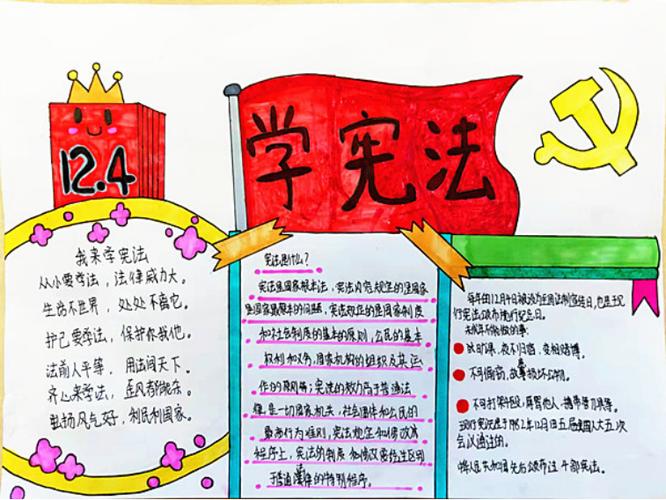 12.4
学宪法
我来学宪法
从小要学法，法律威力大。
生活不世界，处处不离它。
护己要学法，保护你我他。
法前人平等，用法间天下。
齐心来学法，歪风都抛杀。
电扬风气好，利民利国家。
宪法是什么？
宪法是国家根本法，宪法内容规定的是国家
生国家最根本的问题，宪法规定的是国家制度
和社会制度的基本的原则，公民的基本
权利和义务，国家机构的组织及其运
作的原则等；宪法的效力高于普通法
律，是一切国家机关，社会团体和公民的
最高行为准则，宪法
程序上，宪法的制度
普通
的特别程序。
每年的12月4日被设为
宣传日，也是
行宪法公布施行纪念日。
未成年不能做的事：
，夜不归宿，变相赌博。
不可偷窃，故意损坏公物。
不可打架斗殴，辱骂他人，携带管刀具等。
现行宪法是于1982年12月
五届全国人大五次
会议通过的。